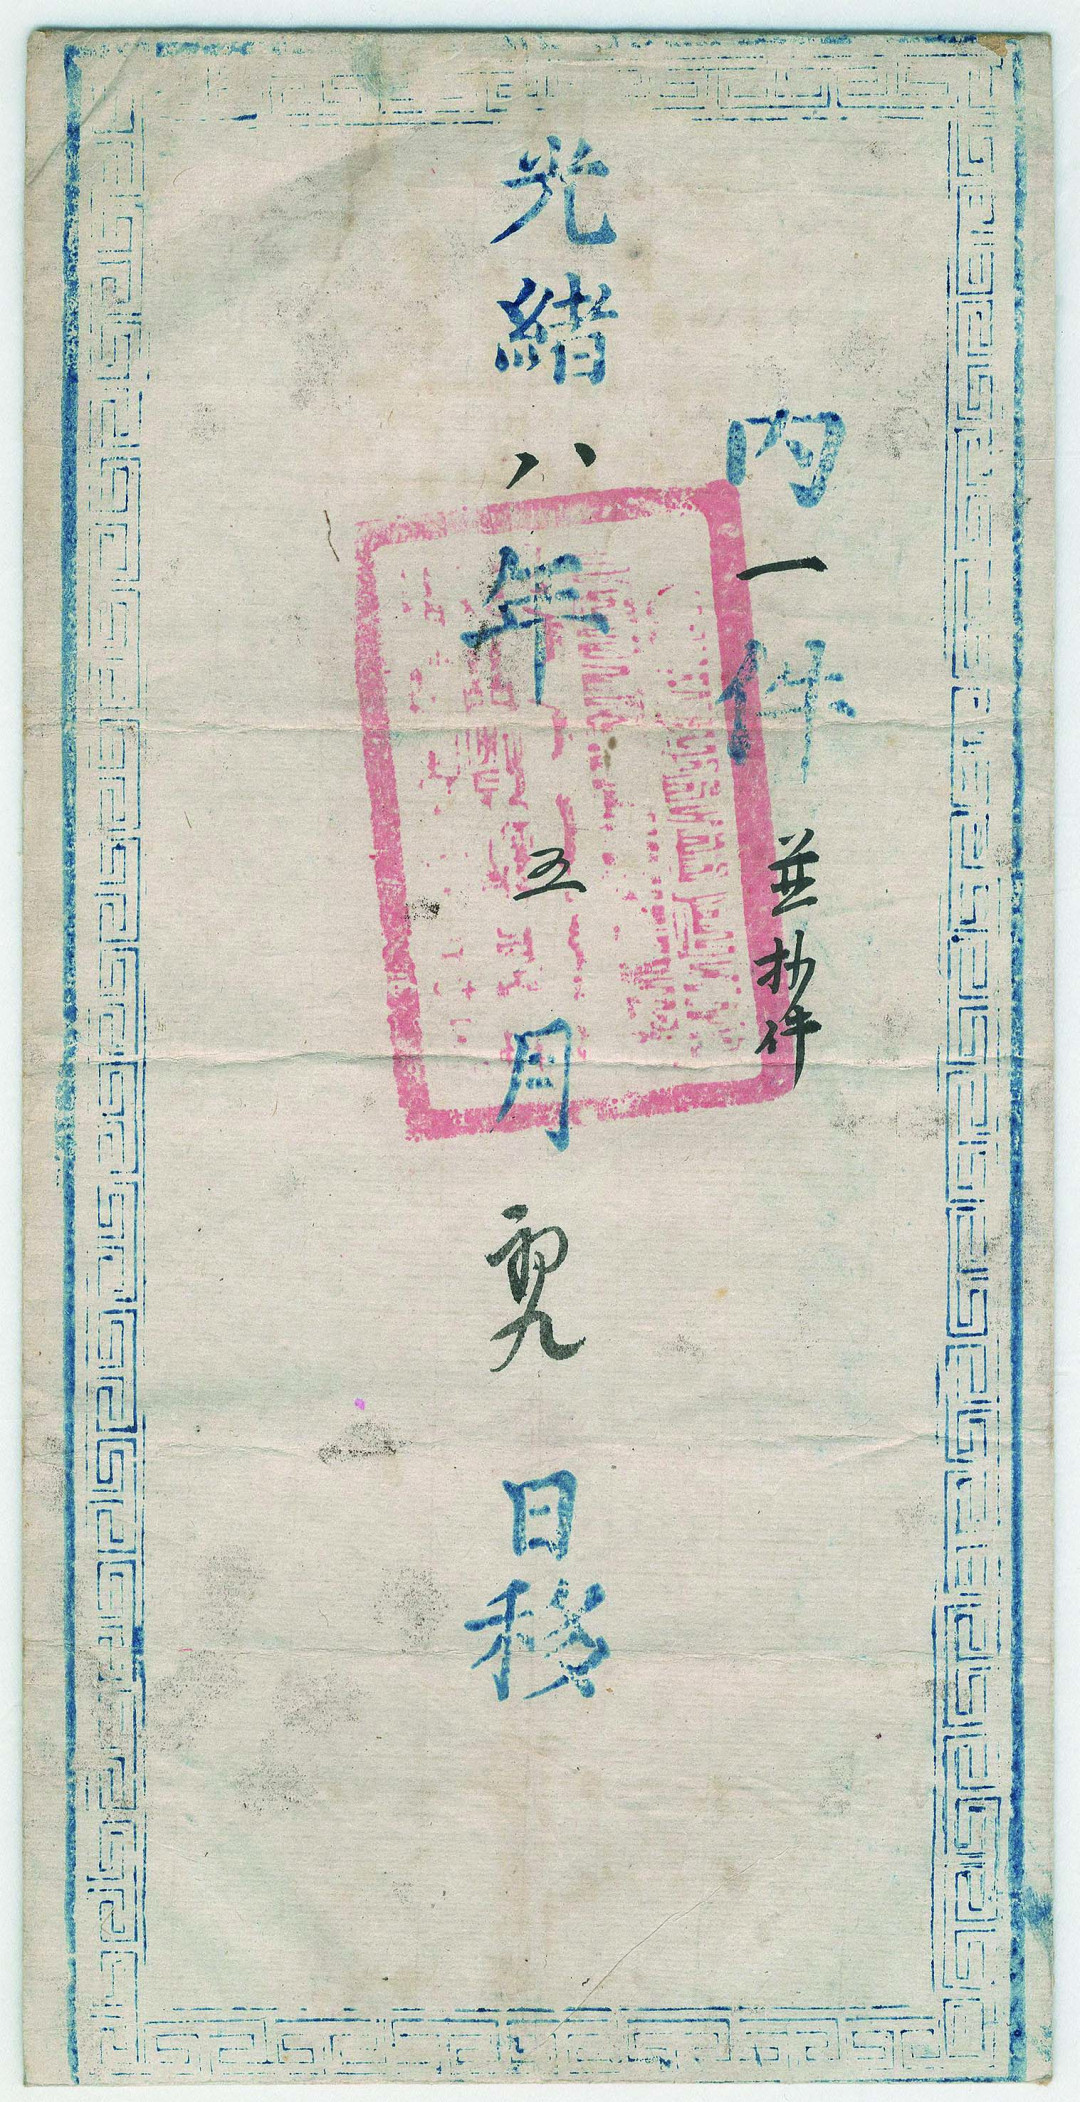 内一件並抄件
光緒八年五月初九日移